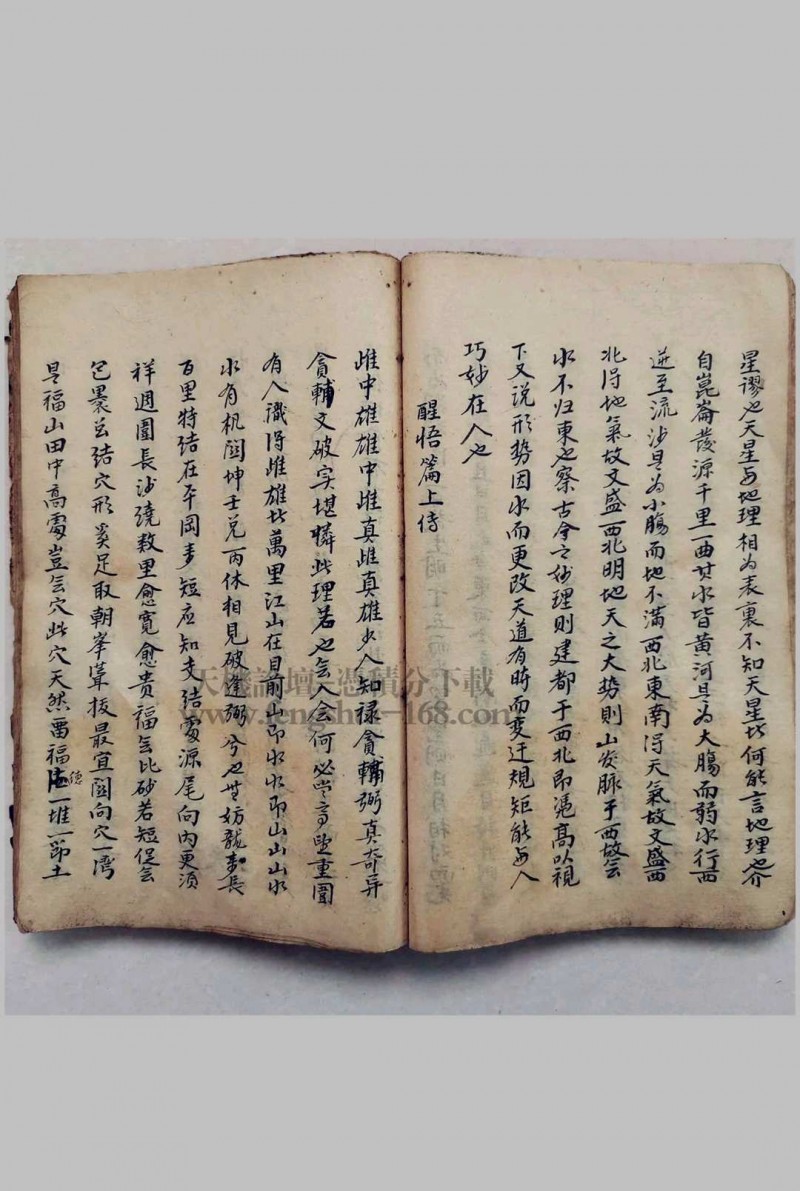 星謬也天星与地理相为表裏不知天星比何能言地理也介
自崑崙發源千里一曲其水皆黄河是为大腸而弱水行西
逆至流沙是为小腸而地不满西北東南得天氣故文盛西
北得地氣故文盛西北明地天之大势則山发脉于西故云
水不归東也察古今之妙理則建都于西北即憑高以視
下又说形势因水而更改天道有時而变迁規矩能与人
巧妙在人也
醒悟篇上侍
雌中雄雄中雌真雌真雄少人知禄貪輔弼真奇异
貪輔文破实堪憐些理若也会人会何必登高望重圍
有人識得雌雄比萬里江山在目前山即水水即山山山水
水有机関坤壬兑丙休相見破逢弼兮也無妨龍来長
百里特结在平岡多短应知支结處源尾向内更须
祥週圍長沙繞数里愈寬愈贵福会比砂若短促会
包裹总结穴形奚足取朝峯聳拔最宜関向穴一湾
是福山田中高處豈会穴此穴天然畱福德一堆一節土
天機論壇 憑積分下載
www.fengshui-168.com